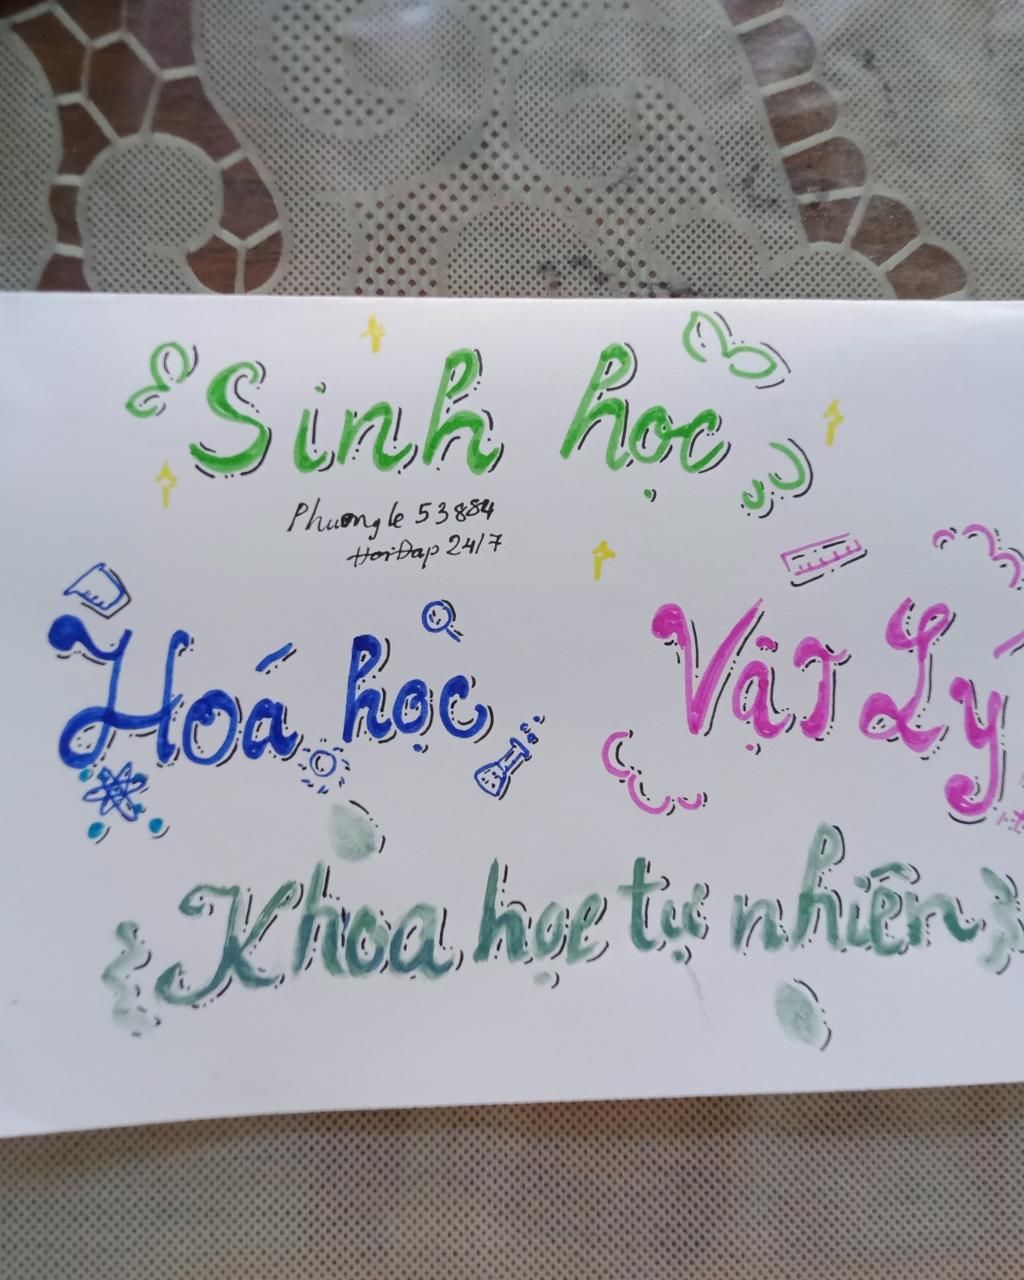 Sinh học
Phuongle 53884
HoiDap 24/7
Hoá học
Vật Lý
Khoa học tự nhiên